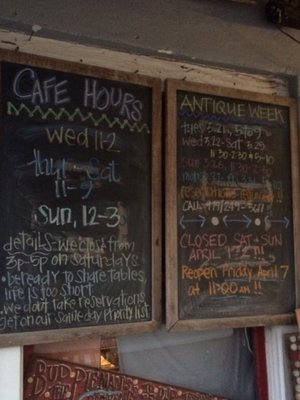 CAFE HOURS
Wed 11-2
Thur - Sat
11-9
Sun, 12-3
details - we close from
3p-5p on Saturdays
• be ready to share tables,
life is too short
• we don't take reservations
get on our same day priority list
ANTIQUE WEEK
tues 3.21, 5 to 9
wed 3.22 - Sat 3.25
11:30-2:30 + 5-10
Sun 3.26, 11:30-2:30
CALL
CLOSED SAT + SUN
APRIL 1+2!!
Reopen Friday, April 7
at 11:00 am!!